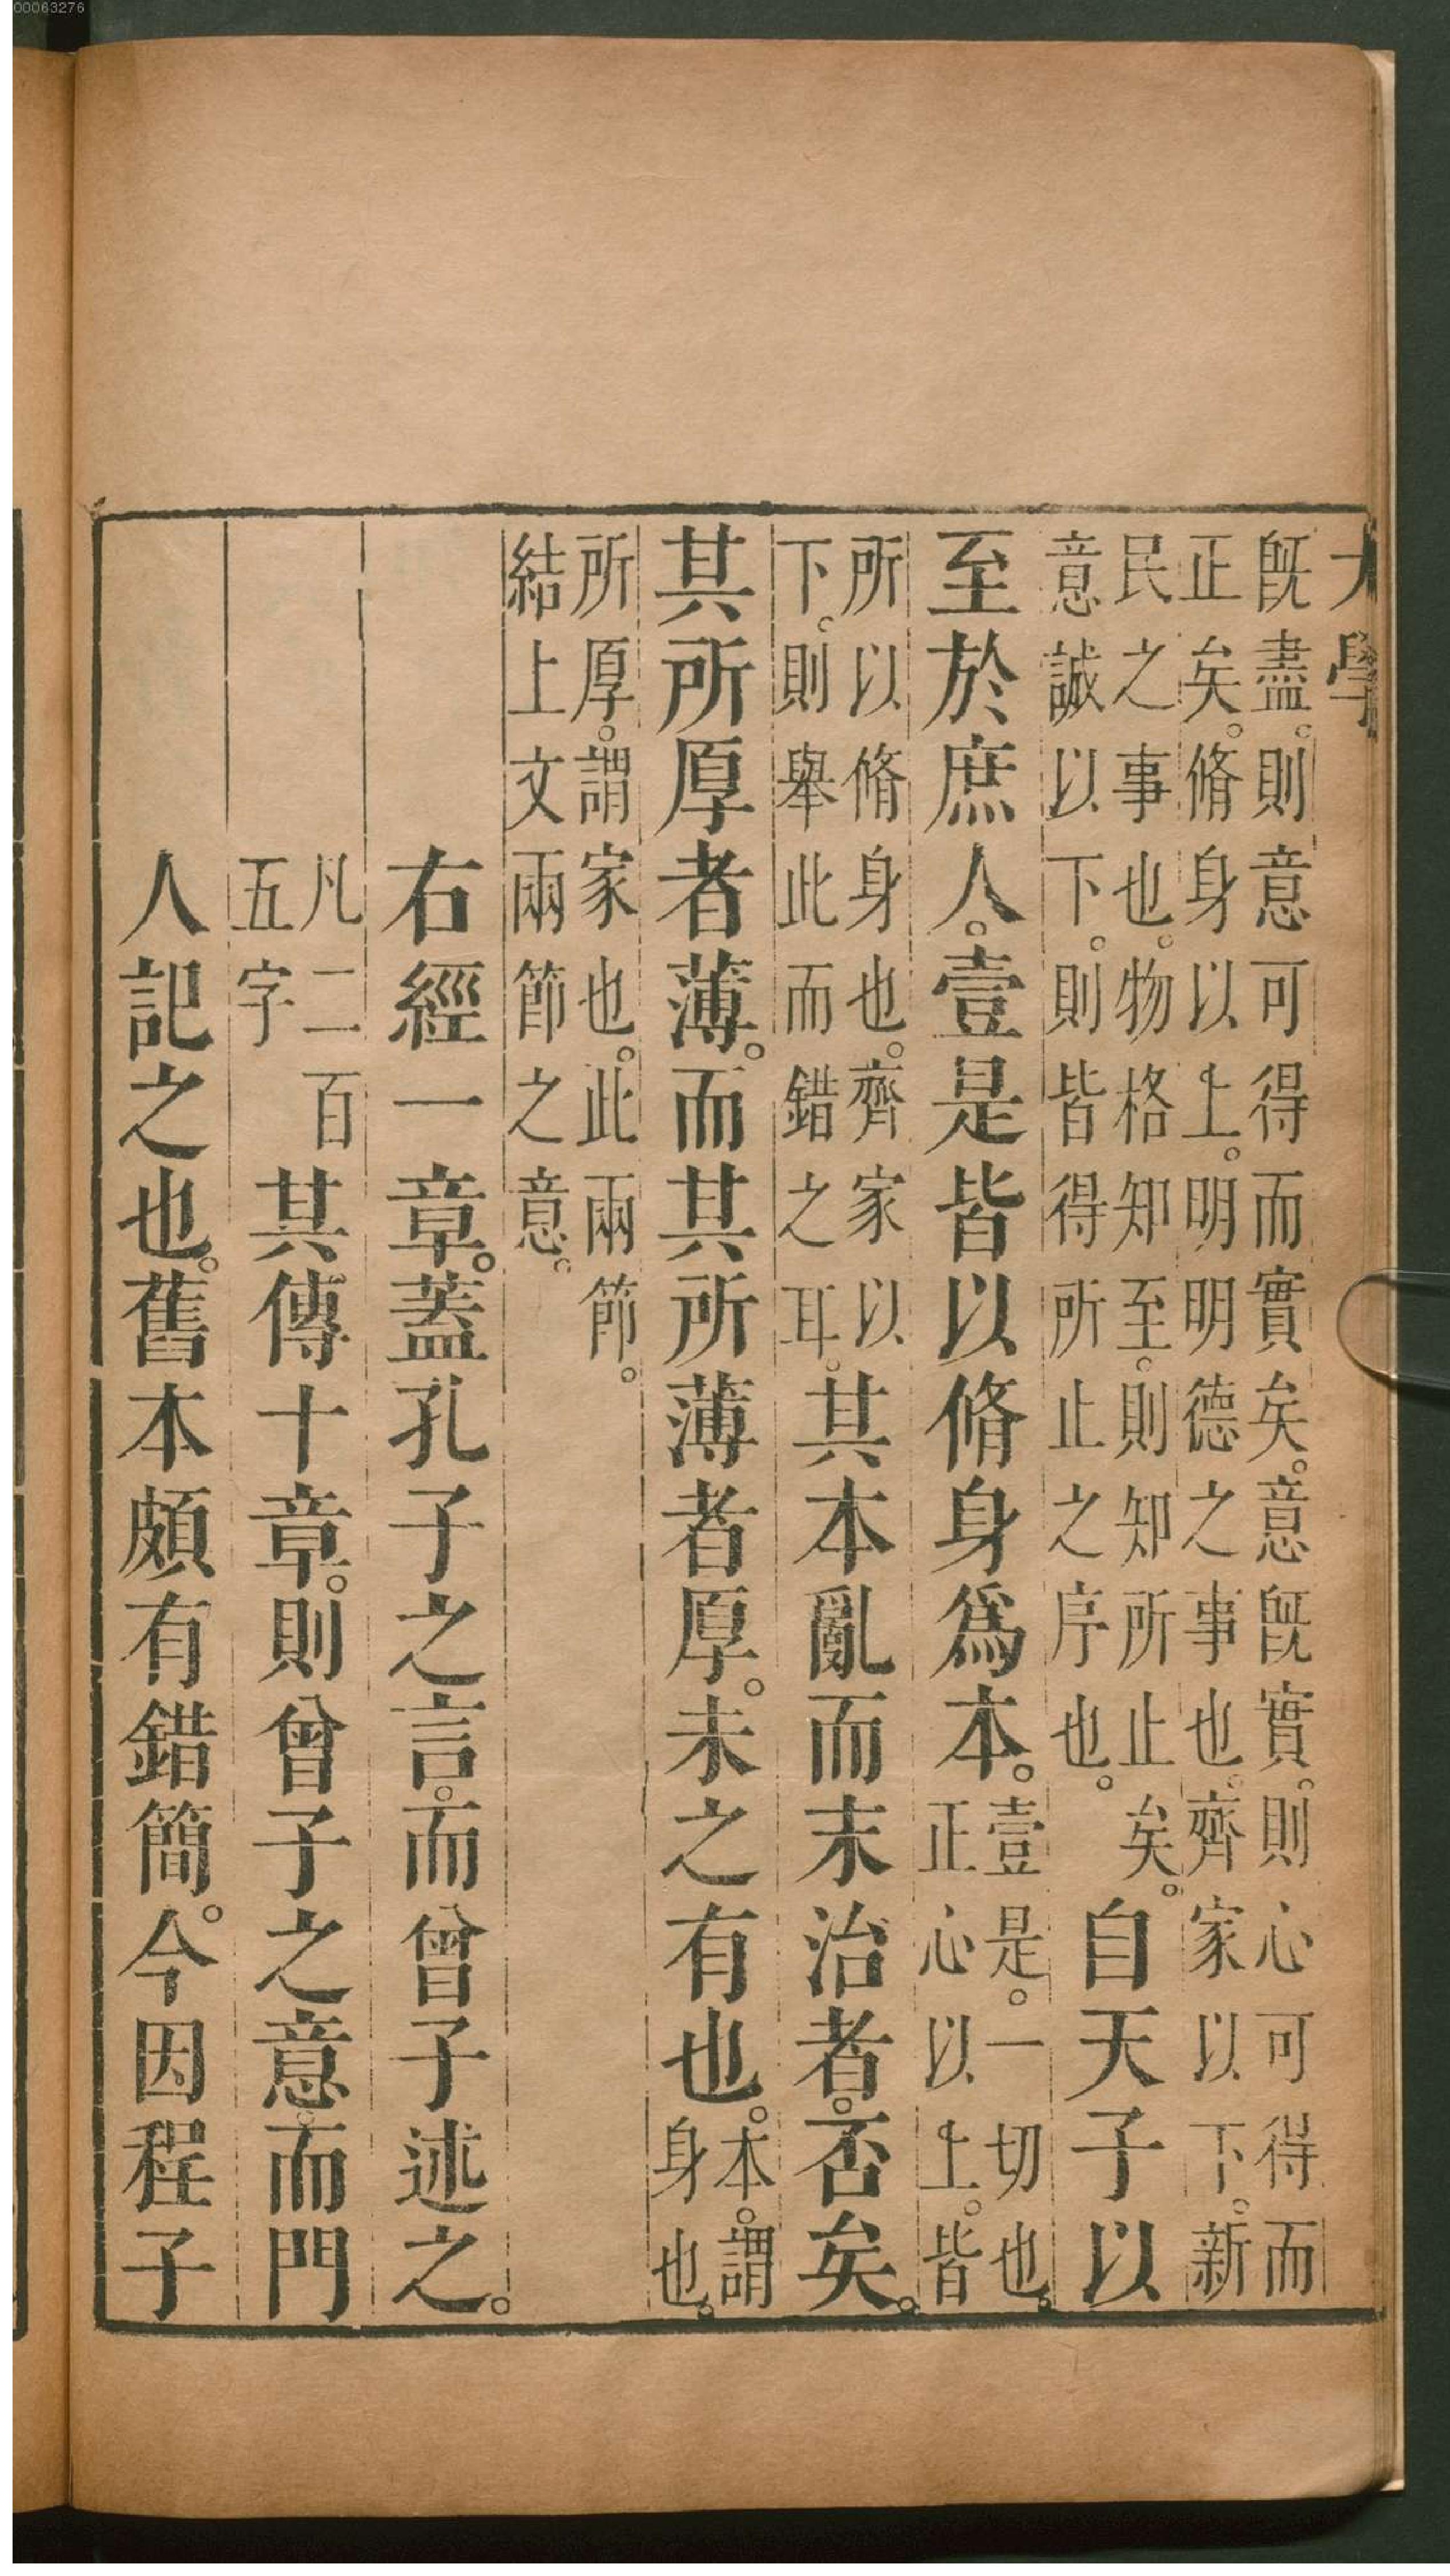 00063276
大學
既盡。則意可得而實矣。意既實。則心可得而
正矣。脩身以上。明明德之事也。齊家以下。新
民之事也。物格知至。則知所止矣。
意誠以下。則皆得所止之序也。
自天子以
至於庶人。壹是皆以脩身爲本。
壹是。一切也。
正心以上。皆
所以脩身也。齊家以
下。則舉此而錯之耳。
其本亂而末治者。否矣。
其所厚者薄。而其所薄者厚。未之有也。
本。謂
身也。
所厚。謂家也。此兩節。
結上文兩節之意。
右經一章。蓋孔子之言。而曾子述之。
凡二百
五字
其傳十章。則曾子之意。而門
人記之也。舊本頗有錯簡。今因程子